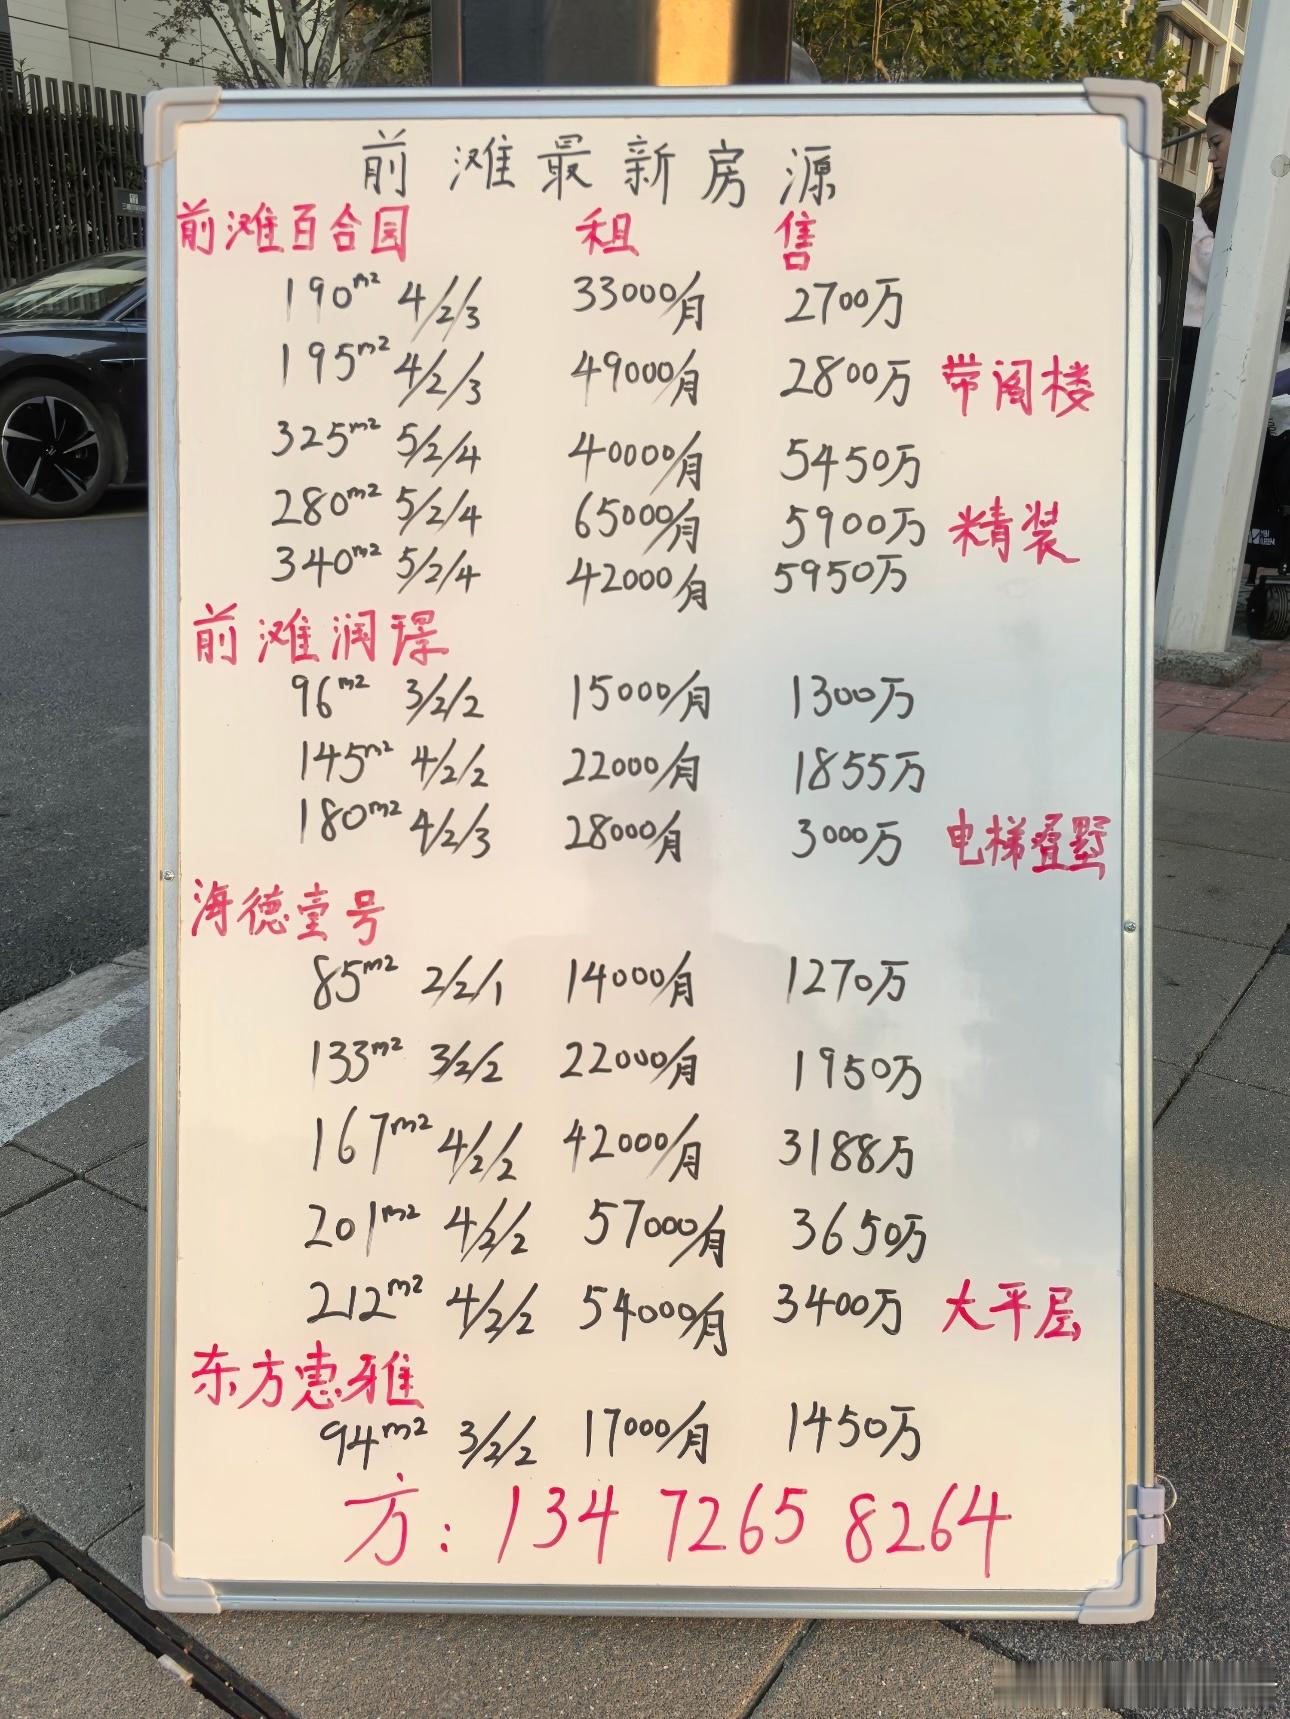 前滩最新房源
前滩百合园 租 售
190m² 4/2/3 33000/月 2700万
195m² 4/2/3 49000/月 2800万 带阁楼
325m² 5/2/4 40000/月 5450万
280m² 5/2/4 65000/月 5900万 精装
340m² 5/2/4 42000/月 5950万
前滩润璟
96m² 3/2/2 15000/月 1300万
145m² 4/2/2 22000/月 1855万
180m² 4/2/3 28000/月 3000万 电梯叠墅
海德壹号
85m² 2/2/1 14000/月 1270万
133m² 3/2/2 22000/月 1950万
167m² 4/2/2 42000/月 3188万
201m² 4/2/2 57000/月 3650万
212m² 4/2/2 54000/月 3400万 大平层
东方惠雅
94m² 3/2/2 17000/月 1450万
方:134 7265 8264